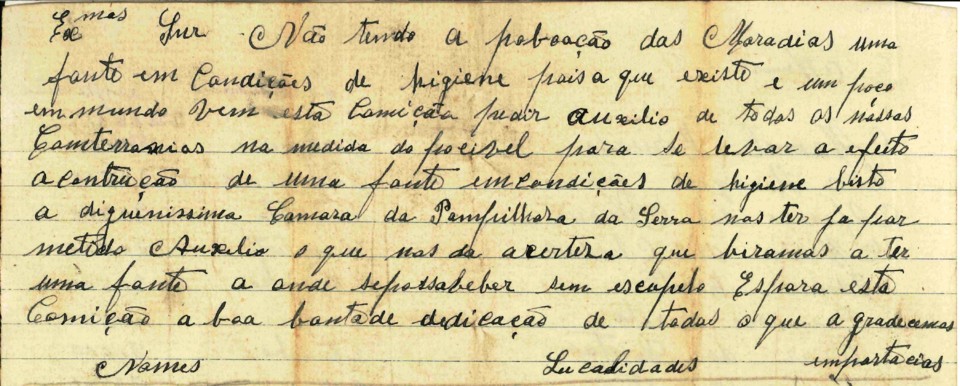 Exmos Snr Não tendo a poboação das Moradias uma
fonte em Condições de higiene pois a que existe e um poço
em mundo Vem esta Comição pedir auxilio de todos os nossos
Comterranios na medida do pocivel para se levar a efeito
a contrução de uma fonte em condições de higiene bisto
a diguenissima Camara da Pampilhoza da Serra nos ter ja por
metido Auxelio o que nos da a certeza que biramos a ter
uma fonte a onde se possa beber sem escupelo Espara esta
Comição a boa bontade dedicação de todos o que a gradecemos
Nomes Lucalidades emportacias